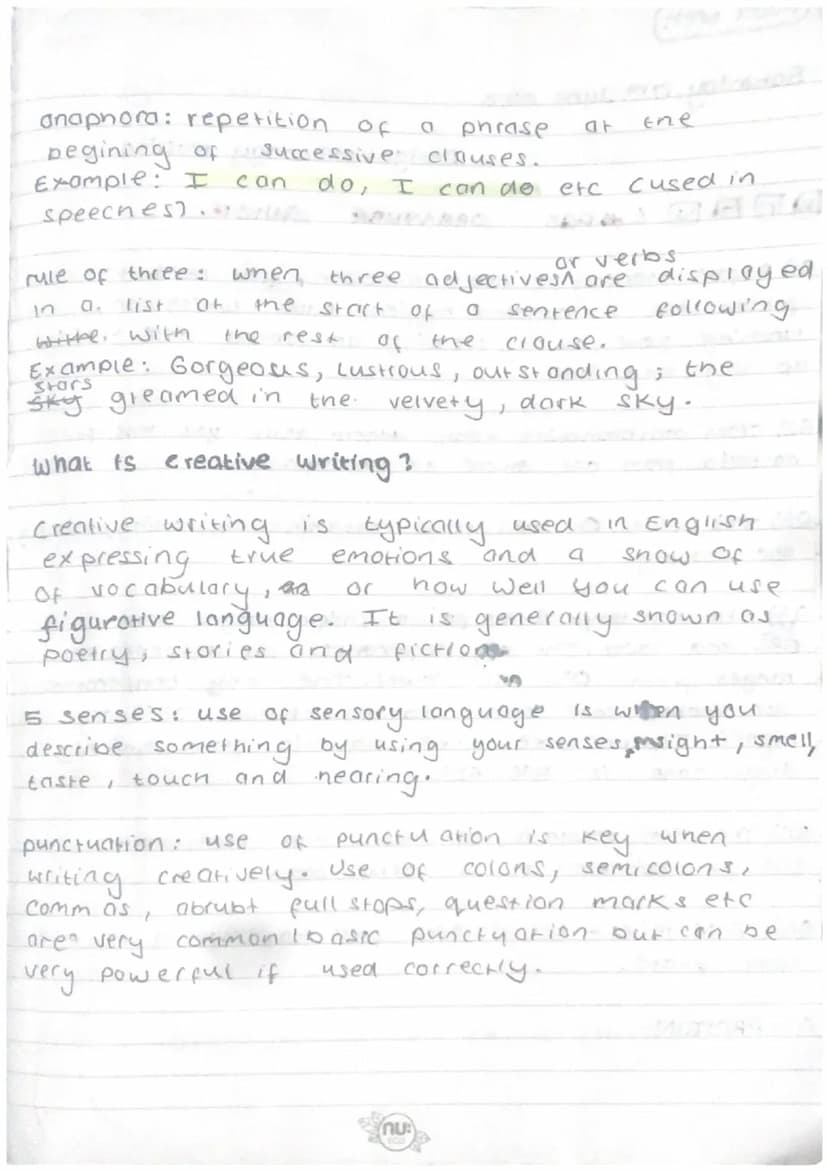 anaphora: repetition of a phrase at the
begining of successive clauses.
Example: I can do, I can do etc (used in
speeches).
or verbs
rule of three: when three adjectives^ are displayed
in a list at the start of a sentence following
withe. with the rest of the clause.
Example: Gorgeous, Lustrous, outstanding; the
stars
sky greamed in the velvety, dark sky.
What is creative writing?
Creative writing is typically used in English
expressing true emotions and a show of
of vocabulary, or how well you can use
figurative language. It is generally shown as
poetry, stories and fiction
5 senses: use of sensory language is when you
describe something by using your senses, sight, smell,
taste, touch and hearing.
punctuation: use of punctuation is key when
writing creatively. Use of colons, semicolons,
commas, abrubt full stops, question marks etc
are very common/basic punctuation but can be
very powerful if used correctly.
nu:
eco